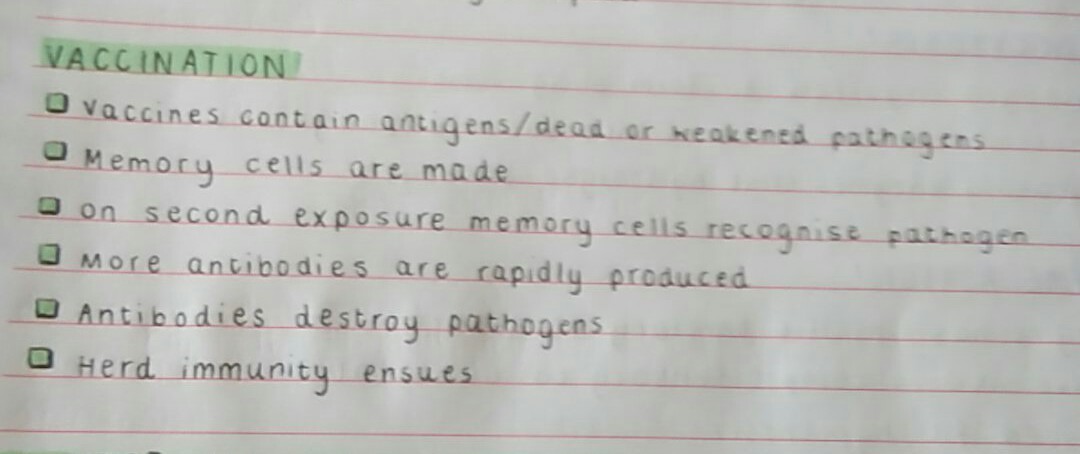 VACCINATION
Vaccines contain antigens/dead or weakened pathogens
Memory cells are made
on second exposure memory cells recognise pathogen
More antibodies are rapidly produced
Antibodies destroy pathogens
Herd immunity ensues